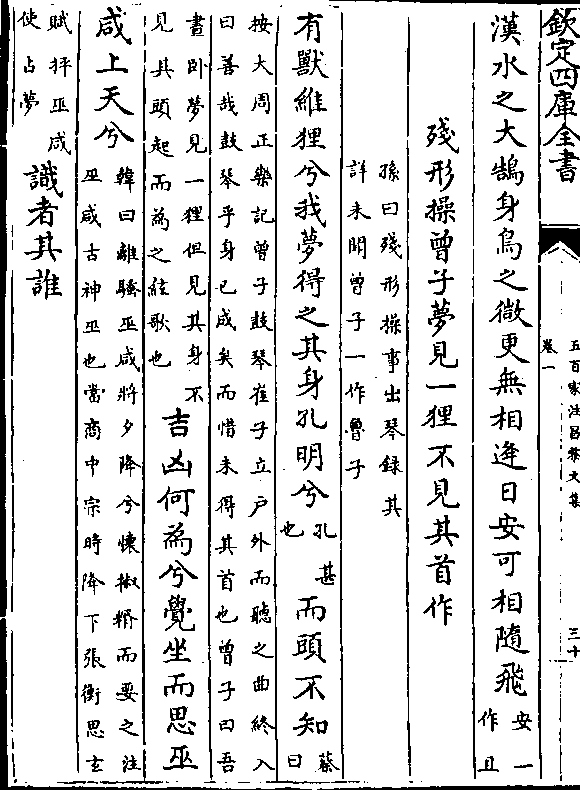 欽定四庫全書
五百家注昌黎文集
卷一
三十
漢水之大鵠身烏之微更無相逢日安可相隨飛安一
作且
殘形操曾子夢見一狸不見其首作
孫曰殘形操事出琴録其
詳未聞曾子一作魯子
有獸維狸兮我夢得之其身孔明兮孔甚
也
而頭不知蔡
曰
按大周正樂記曾子鼓琴崔子立户外而聽之曲終入
曰善哉鼓琴乎身已成矣而惜未得其首也曾子曰吾
晝卧夢見一狸但見其身不
見其頭起而為之絃歌也
吉凶何為兮覺坐而思巫
咸上天兮韓曰離騷巫咸將夕降兮懷椒糈而要之注
巫咸古神巫也當商中宗時降下張衡思玄
賦抨巫咸
使占夢
識者其誰